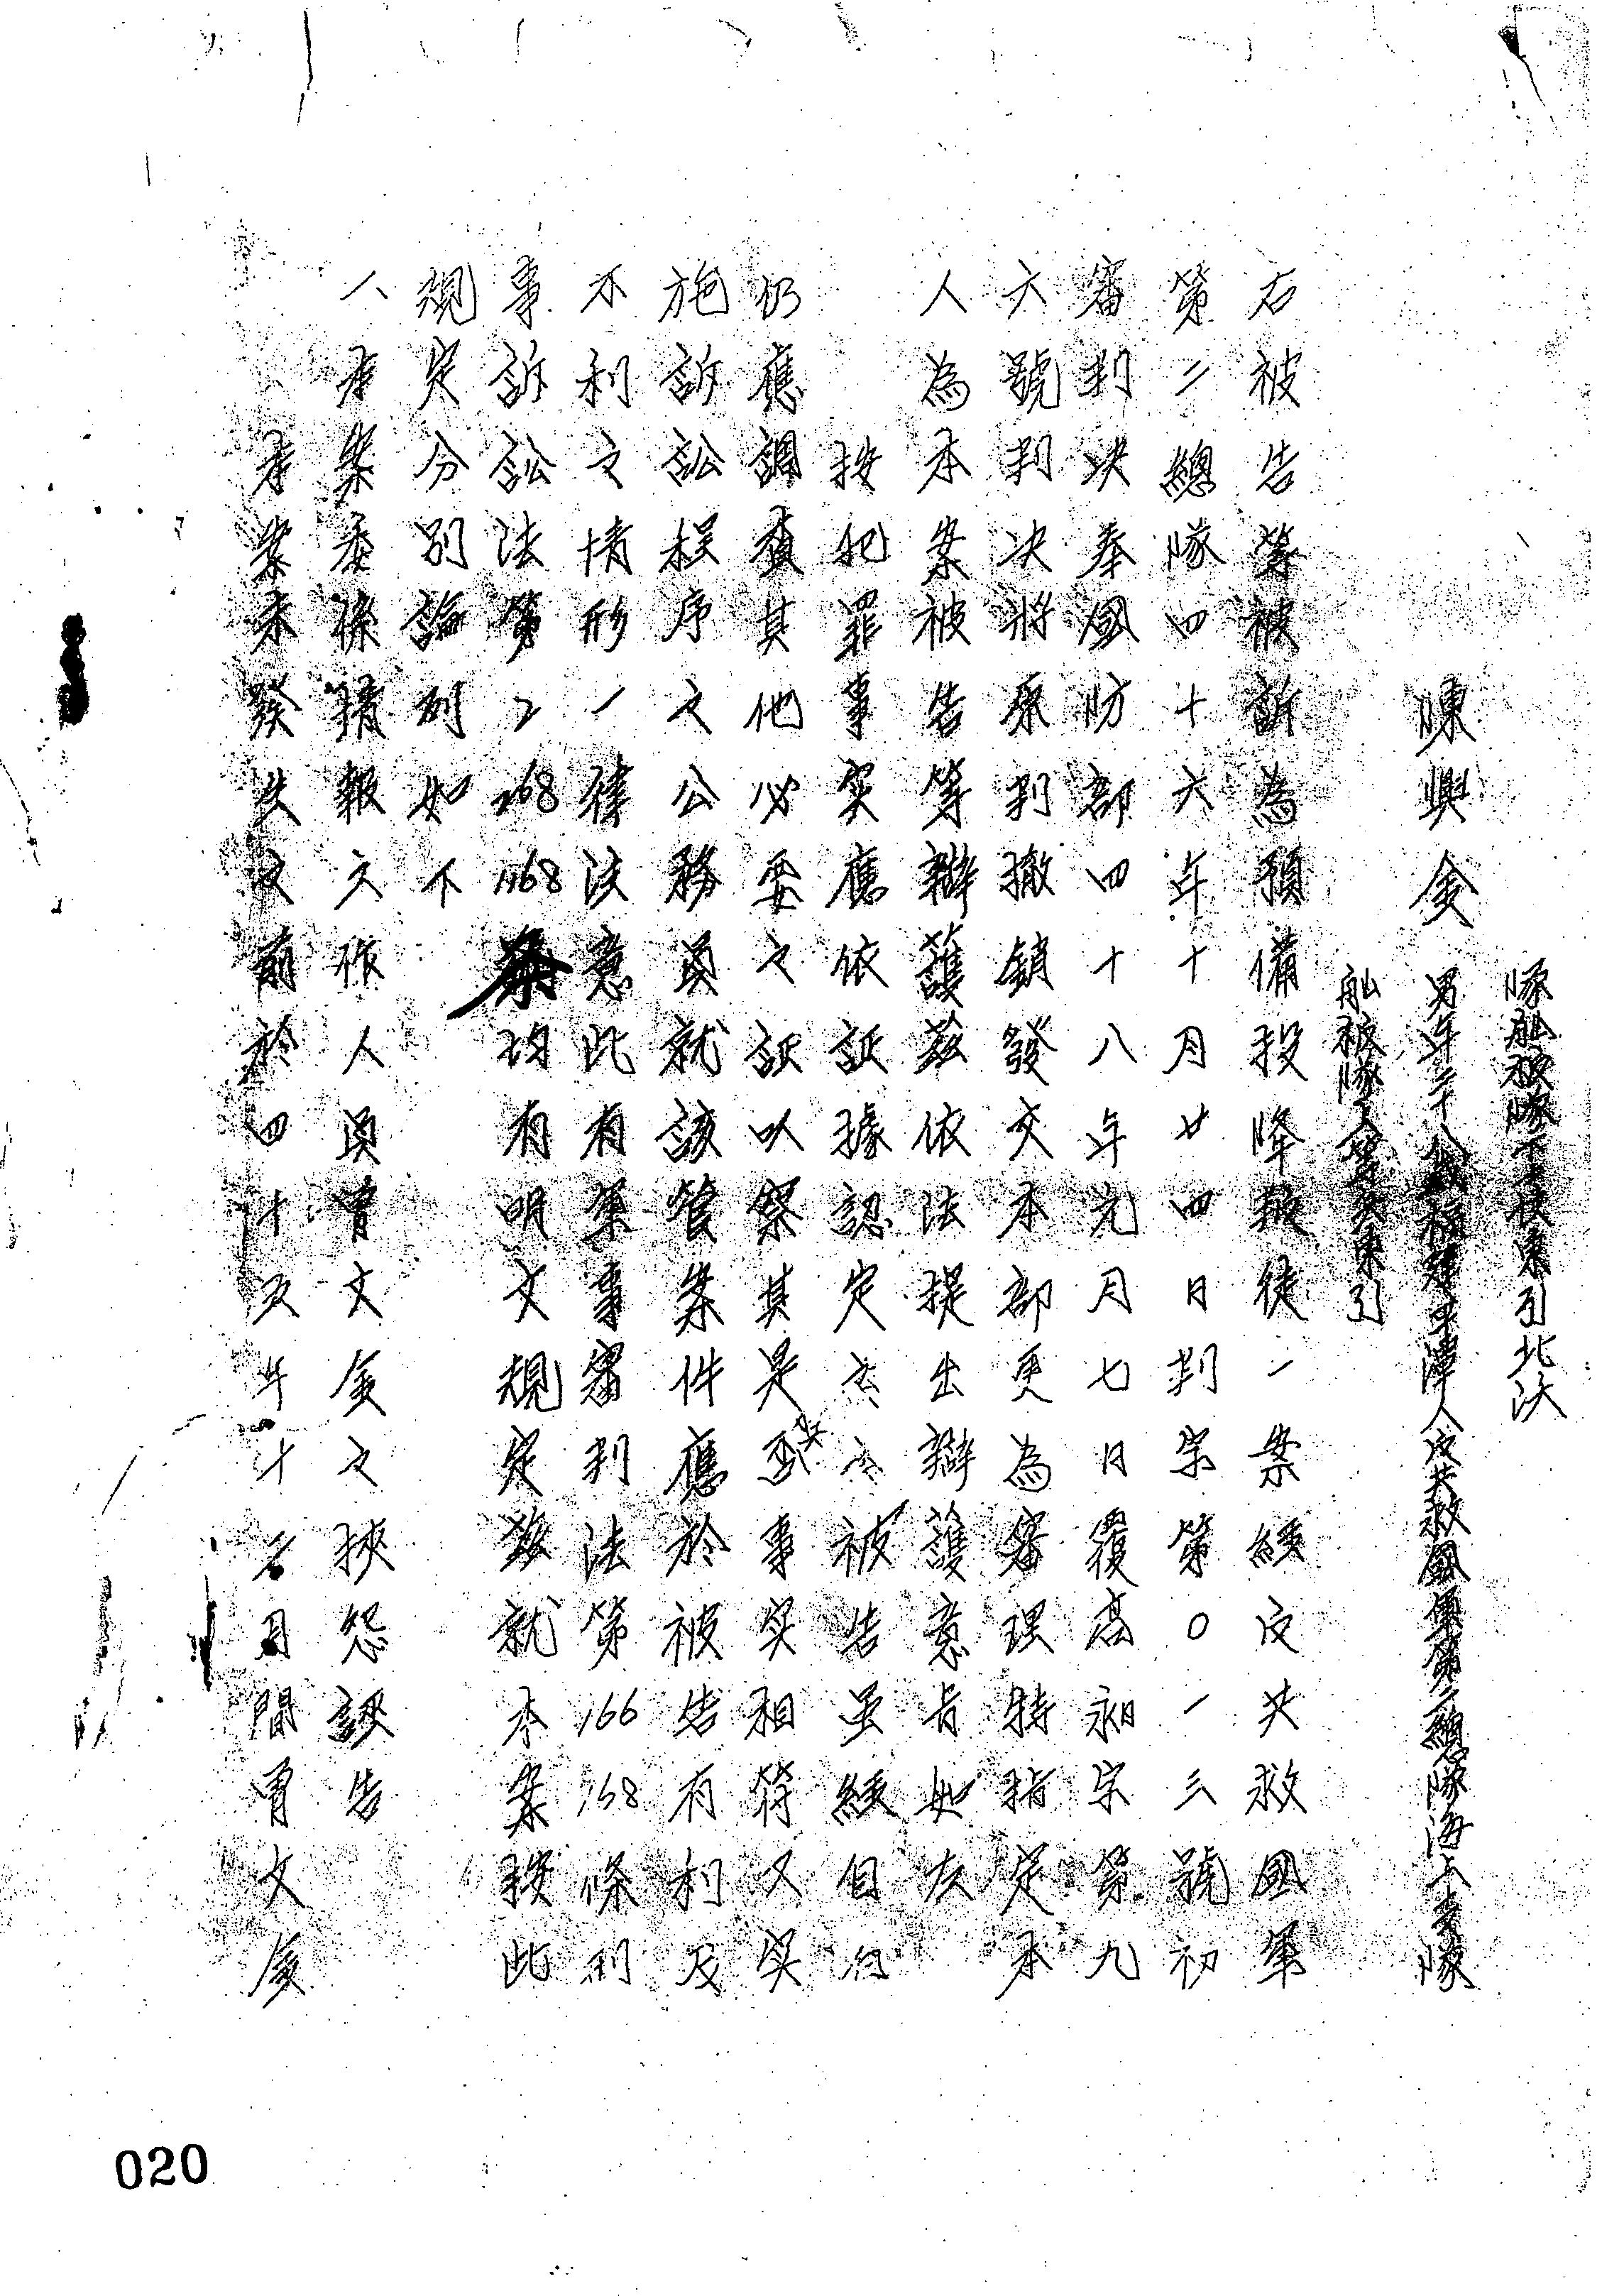 隊船被隊 東引北沃
陳興金 男年三十八歲福建平潭人反共救國軍第二總隊海上支隊
船被隊 東引
右被告等被訴為預備投降叛徒一案經反共救國軍
第二總隊四十六年十月廿四日判字第0一三號初
審判決奉國防部四十八年元月七日覆高昶字第九
六號判決將原判撤銷發交本部更為審理特指定本
人為本案被告等辯護茲依法提出辯護意旨如左
按犯罪事實應依證據認定 被告虽經自白
仍應調查其他必要之証以察其是否與事實相符又實
施訴訟程序之公務員就該管案件應於被告有利及
不利之情形一律注意此有案事審判法第166 168條刑
事訴訟法第2 268 1168條均有明文規定茲就本案按此
規定分別論列如下
八本案係情報工作人員曾文金之挾怨誤告
本案未發生之前於四十五年十一月間曾文金
020